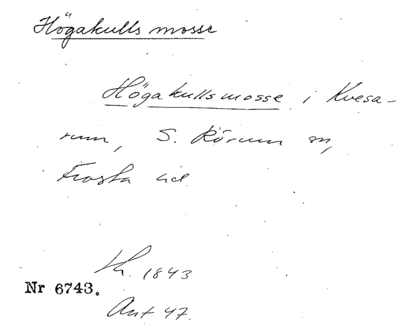 Högakulls mosse
Högakullsmosse i Kvesa-
rum, S. Rörum sn,
Frosta hd
Kh. 1843
Nr 6743.
Ant 47.